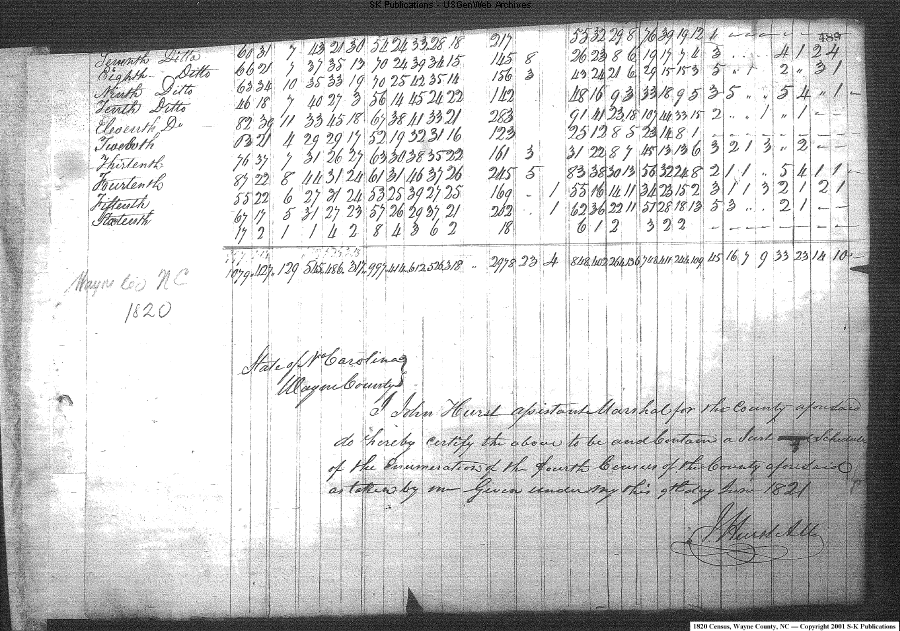 SK Publications - USGenWeb Archives
Seventh Ditto 61 31 7 43 21 30 54 24 33 28 18 217 55 32 29 8 76 39 19 12 4
Eighth Ditto 66 21 7 37 35 13 70 24 39 34 15 145 8 26 23 8 6 19 17 7 4 3 4 1 2 4
Ninth Ditto 63 34 10 35 33 19 70 25 42 35 14 156 3 43 24 21 6 29 15 15 3 5 2 3 1
Tenth Ditto 46 18 7 40 27 3 56 14 45 24 22 142 48 16 9 3 33 18 9 5 3 5 5 4 1
Eleventh Do 82 30 11 33 45 18 67 38 41 33 21 283 91 41 23 18 107 44 33 15 2 1 1
Twelvth 63 21 4 29 29 17 52 19 32 31 16 123 25 12 8 5 23 14 8 1
Thirteenth 76 37 7 31 26 27 63 30 38 35 22 161 3 31 22 8 7 45 13 13 6 3 2 1 3 2
Fourteenth 87 22 8 44 31 24 61 31 46 37 26 245 5 83 38 30 13 56 32 24 8 2 1 1 5 4 1 1
Fifteenth 55 22 6 27 31 24 53 25 39 27 25 169 1 55 16 14 11 34 23 15 2 3 1 1 3 2 1 2 1
Sixteenth 67 17 5 31 27 23 57 26 29 37 21 202 1 62 36 22 11 51 28 18 13 5 3 2 1
17 2 1 1 4 2 8 4 3 6 2 18 6 1 2 3 2 2
1079 427 129 2978 23 4 15 16 7 9 33 23 14 10
Wayne Co NC
1820
State of No Carolina
Wayne County
I John Hurst assistant Marshal for the County aforesaid
do hereby certify the above to be and Contain a Just Schedule
of the Enumeration of the fourth Census of the County aforesaid
as taken by me Given under my this 9th day June 1821
J Hurst
1820 Census, Wayne County, NC — Copyright 2001 S-K Publications